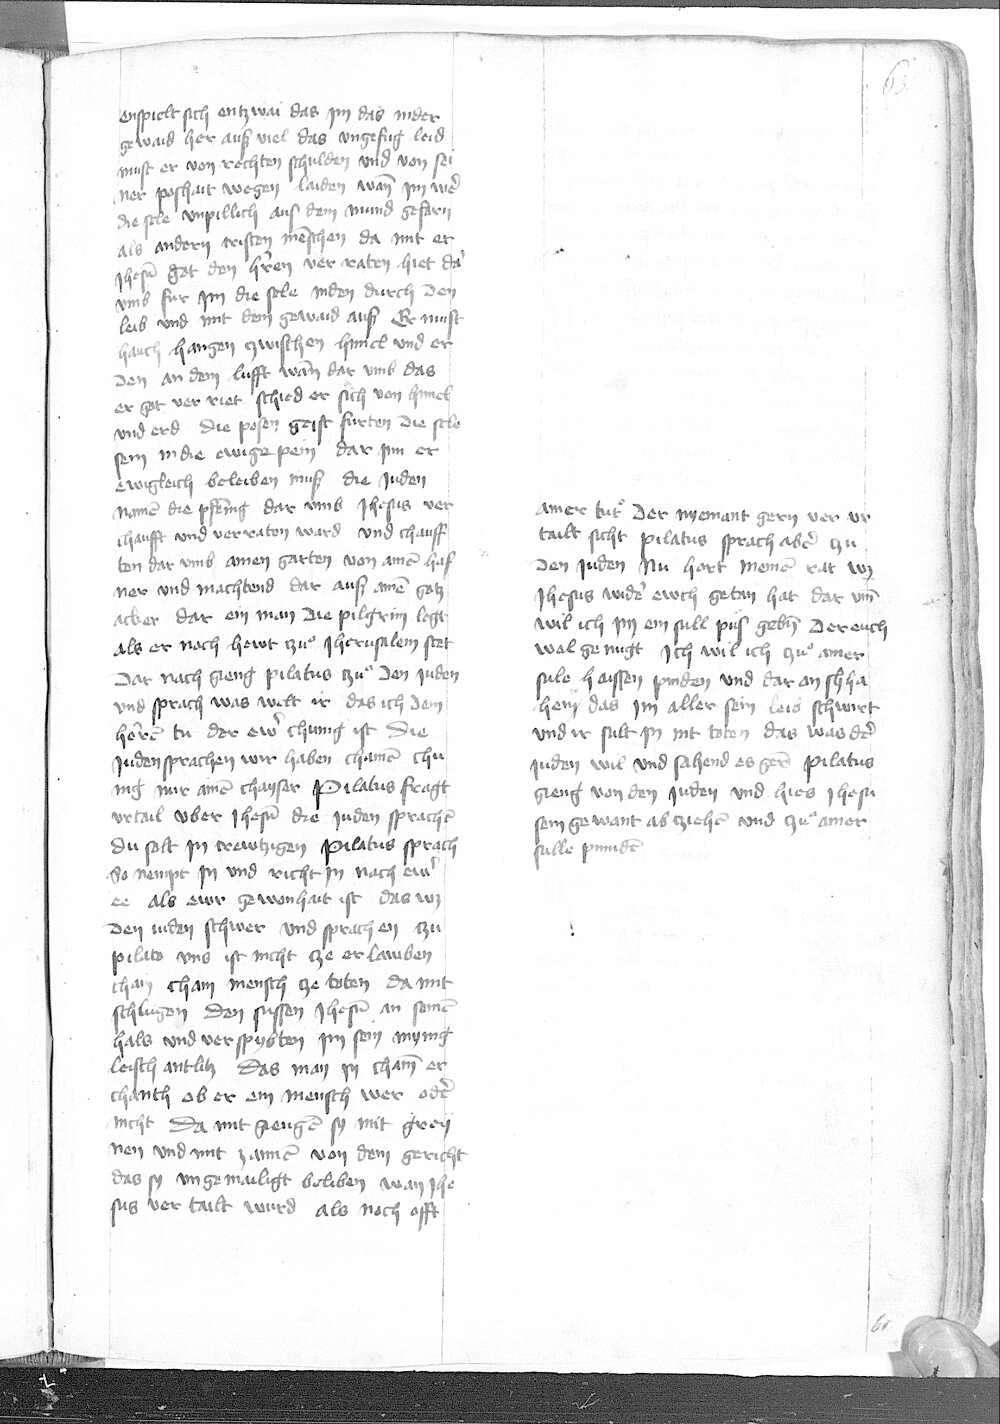 63
enspielt sich entzwai das im das inder
gewaid her auß viel das ungefug leid
must er von rechten schulden und von sei
ner poshait wegen laiden wañ im wer̄
die sele unpillich aus dem mund gefarn
als andern cristen mēschen da mit er
Jhesū got den hr̄en ver raten hiet dar̄
umb fur im die sele inden durch den
leib und mit dem gewaid auß Er must
hauch hangen czwischen himel und er
den an dem lufft wañ dar umb das
er got ver riet schied er sich von himel
und erd die posen geist furten die sele
sein in die ewige pein dar inn er
ewigleich beleiben muß die Juden
namē die pfēnīg dar umb Jhesus ver
chaufft und verraten ward und chauff
ten dar umb ainen garten von ainē haf
ner und machtend dar auß ainē gotz
acker dar ein man die pilgrim legt
als er noch hewt czuͦ Jherusalem stet
Dar nach gieng pilatus czuͦ den Juden
und sprach was welt ir das ich dem
her̄ē tu der ew̄ chunig ist die
Juden sprachen wir haben chainē chu
nig nur ainē chayser Pilatus fragt
urtail uber Jhesū die Juden sprachē
du solt in crewtzigen Pilatus sprach
So nempt in und richt in nach ew̄
ee als ewr gewonhait ist das wz
den iuden schwer und sprachen czu
pilato uns ist nicht cze erlawben
chain cham mensch cze toten da mit
schlugen den sussen Jhesū an seinē
hals und verspybten im sein mynig
leisch antlitz das man in chaum̄ er
chanth ob er ein mensch wer oder̄
nicht Da mit giengē sy mit grey
nen und mit zannē von dem gericht
das sy ungemailigt beliben wan Jhe
sus ver tailt wurd als noch offt
ainer tutͦ Der nyemant gern ver ur
tailt sicht pilatus sprach aber̄ czu
den Juden Nu hort meinē rat wz
Jhesus wider̄ ewch getan hat dar um̄
wil ich im ein sull puß gebn̄ Der euch
wol genugt Ich wil ich czuͦ ainer
sule haissen pinden und dar an schla
hen das im aller sein leib schwirt
und ir sult in nit toten das was der̄
Juden wil und sahend es gerē pilatus
gieng von den Juden und hies Jhesu
sein gewant ab cziehē und czuͦ ainer
sulle pinndē